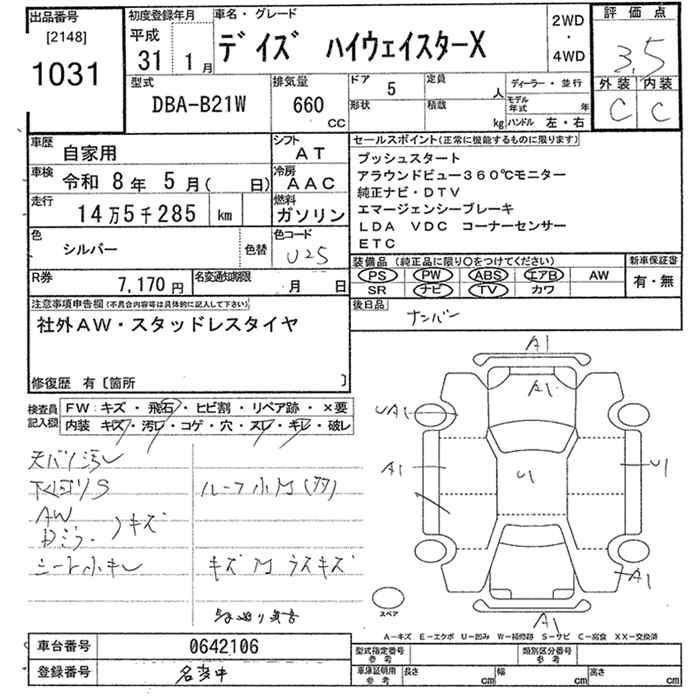 出品番号
[2148]
1031
初度登録年月
平成
31 1月
車名・グレード
デイズ ハイウェイスターX
2WD
・
4WD
評価点
3.5
外装 内装
C C
型式
DBA-B21W
排気量
660
CC
ドア 5
形状
定員 人
積載 kg
ディーラー・並行
モデル年式 年
ハンドル 左・右
車歴
自家用
シフト
AT
車検
令和 8年 5月( 日)
冷房
AAC
走行
14万5千285 km
燃料
ガソリン
色
シルバー
色替
色コード
U25
R券
7,170円
名変通知期限
月 日
セールスポイント(正常に機能するものに限ります)
プッシュスタート
アラウンドビュー360℃モニター
純正ナビ・DTV
エマージェンシーブレーキ
LDA VDC コーナーセンサー
ETC
装備品 (純正品に限り○をつけてください)
PS PW ABS エアB AW
SR ナビ TV カワ
新車保証書
有・無
後日品
ナンバー
注意事項申告欄(不具合内容等は具体的に記入して下さい)
社外AW・スタッドレスタイヤ
修復歴 有〔箇所 〕
検査員記入欄
FW: キズ・飛石・ヒビ割・リペア跡・×要
内装: キズ・汚レ・コゲ・穴・スレ・キレ・破レ
天バリ汚レ
下回りS
ルーフ小M(多)
AW
Dミラー 〉キズ
シート小キレ
キズM ウスキズ
A1
A1
UA1
A1
U1
U1
A1
A1
スペア
A-キズ E-エクボ U-凹み W-補修跡 S-サビ C-腐食 XX-交換済
車台番号
0642106
登録番号
名変中
型式指定番号
参考
類別区分番号
参考
車庫証明用
参考
長さ cm
幅 cm
高さ cm